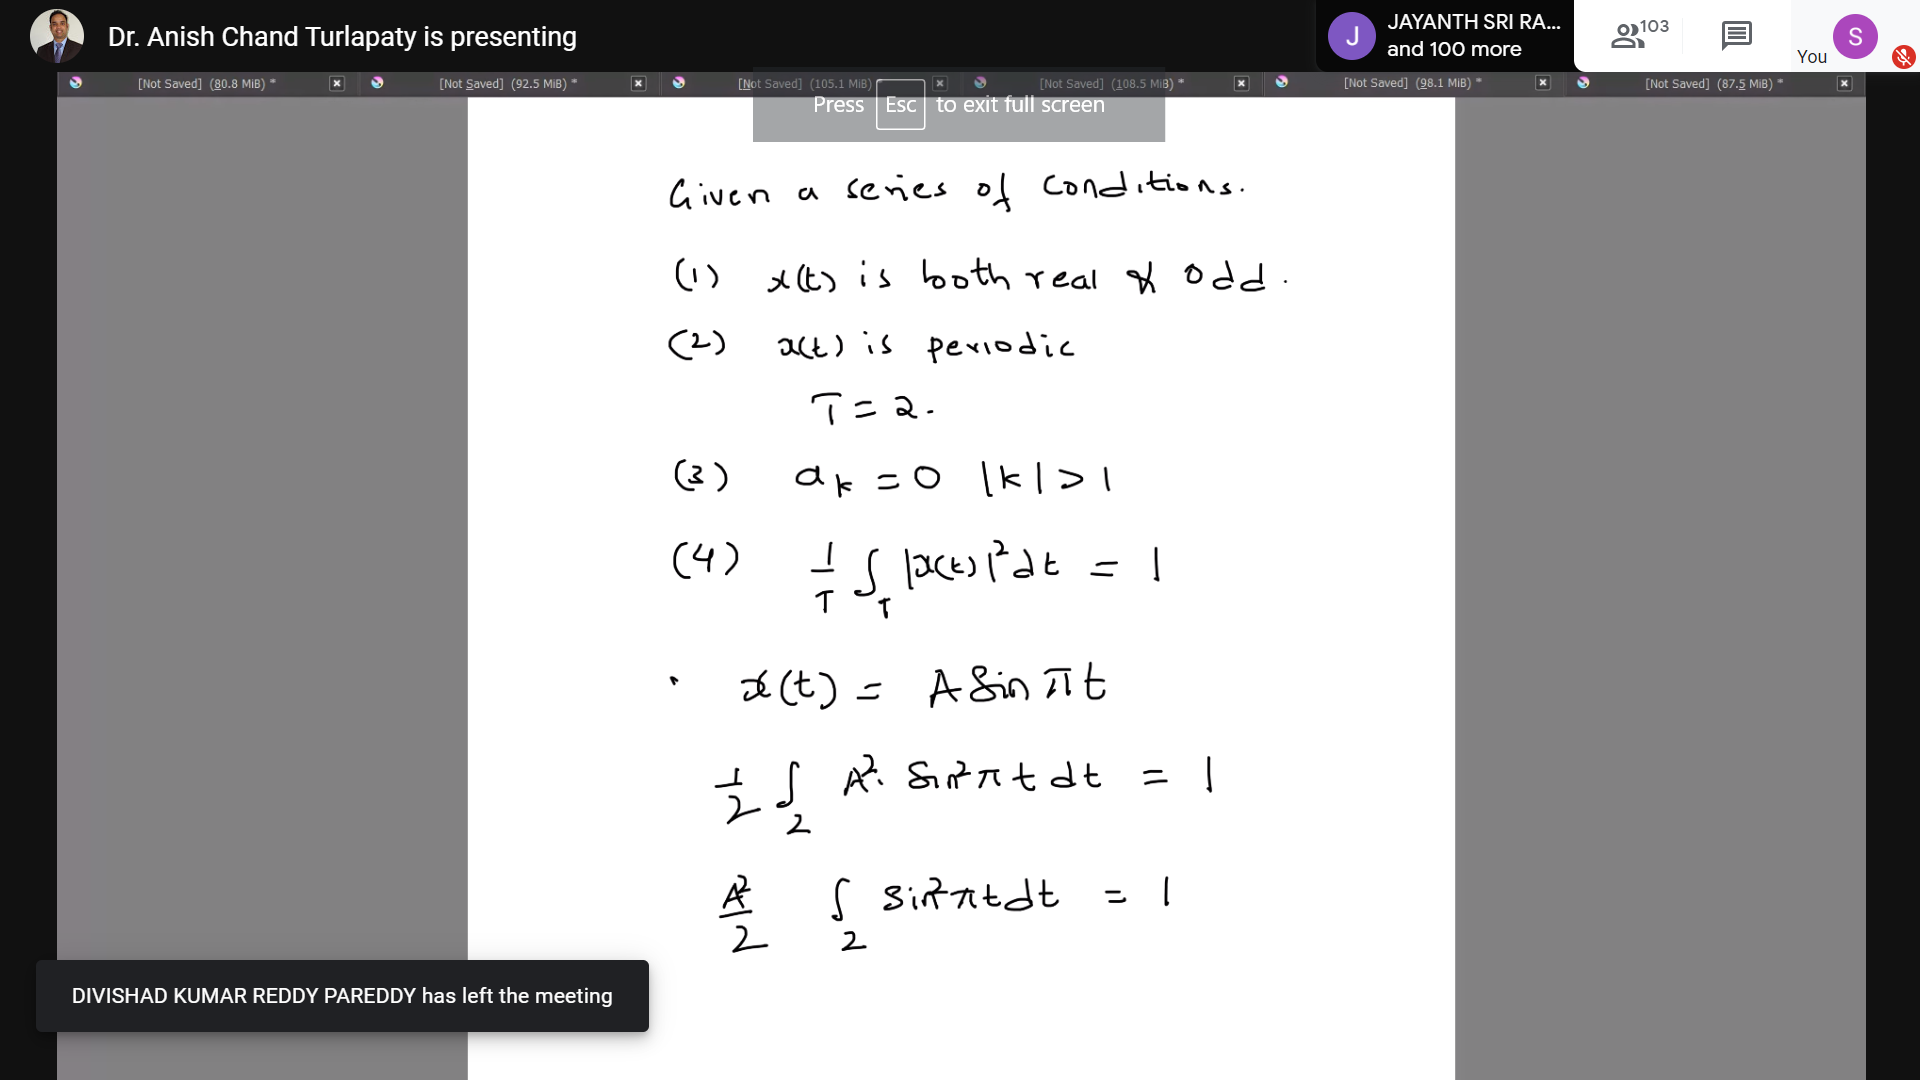 Dr. Anish Chand Turlapaty is presenting
J
JAYANTH SRI RA...
and 100 more
103
You
S
[Not Saved] (80.8 MiB) *
[Not Saved] (92.5 MiB) *
[Not Saved] (105.1 MiB)
[Not Saved] (108.5 MiB) *
[Not Saved] (98.1 MiB) *
[Not Saved] (87.5 MiB) *
Press Esc to exit full screen
Given a series of conditions.
(1) x(t) is both real & odd.
(2) x(t) is periodic
T = 2.
(3) a_k = 0 |k| > 1
(4) 1/T ∫_T |x(t)|² dt = 1
x(t) = A Sin π t
1/2 ∫_2 A². Sin² π t dt = 1
A²/2 ∫_2 sin² π t dt = 1
DIVISHAD KUMAR REDDY PAREDDY has left the meeting